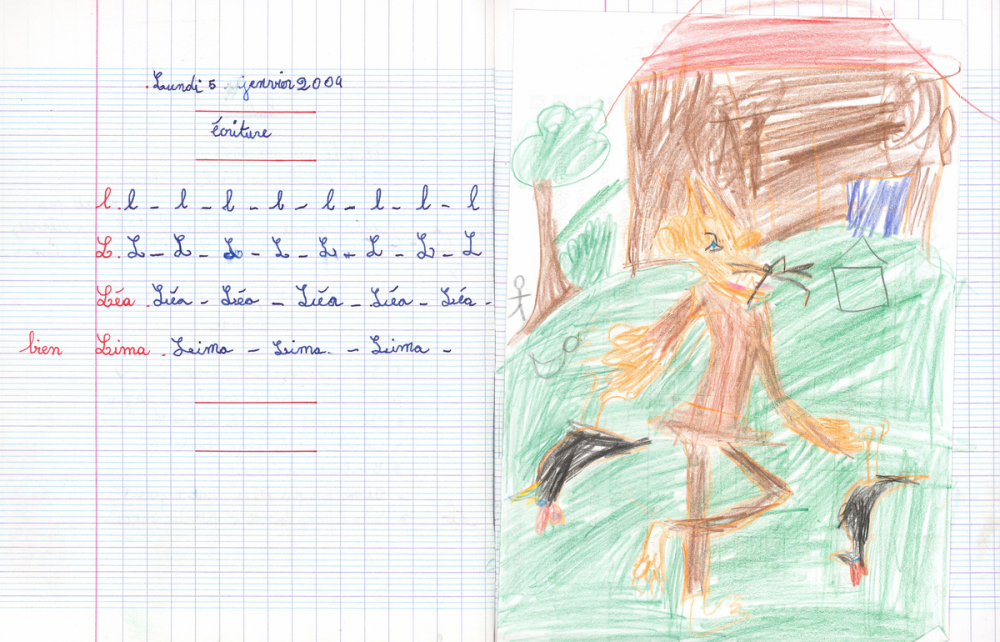 .Lundi 5 janvier 2009
Écriture
l. l - l - l - l - l - l - l - l
L. L - L - L - L - L - L - L - L
Léa . Léa - Léa - Léa - Léa - Léa -
bien Lima . Lima - Lima. - Lima -